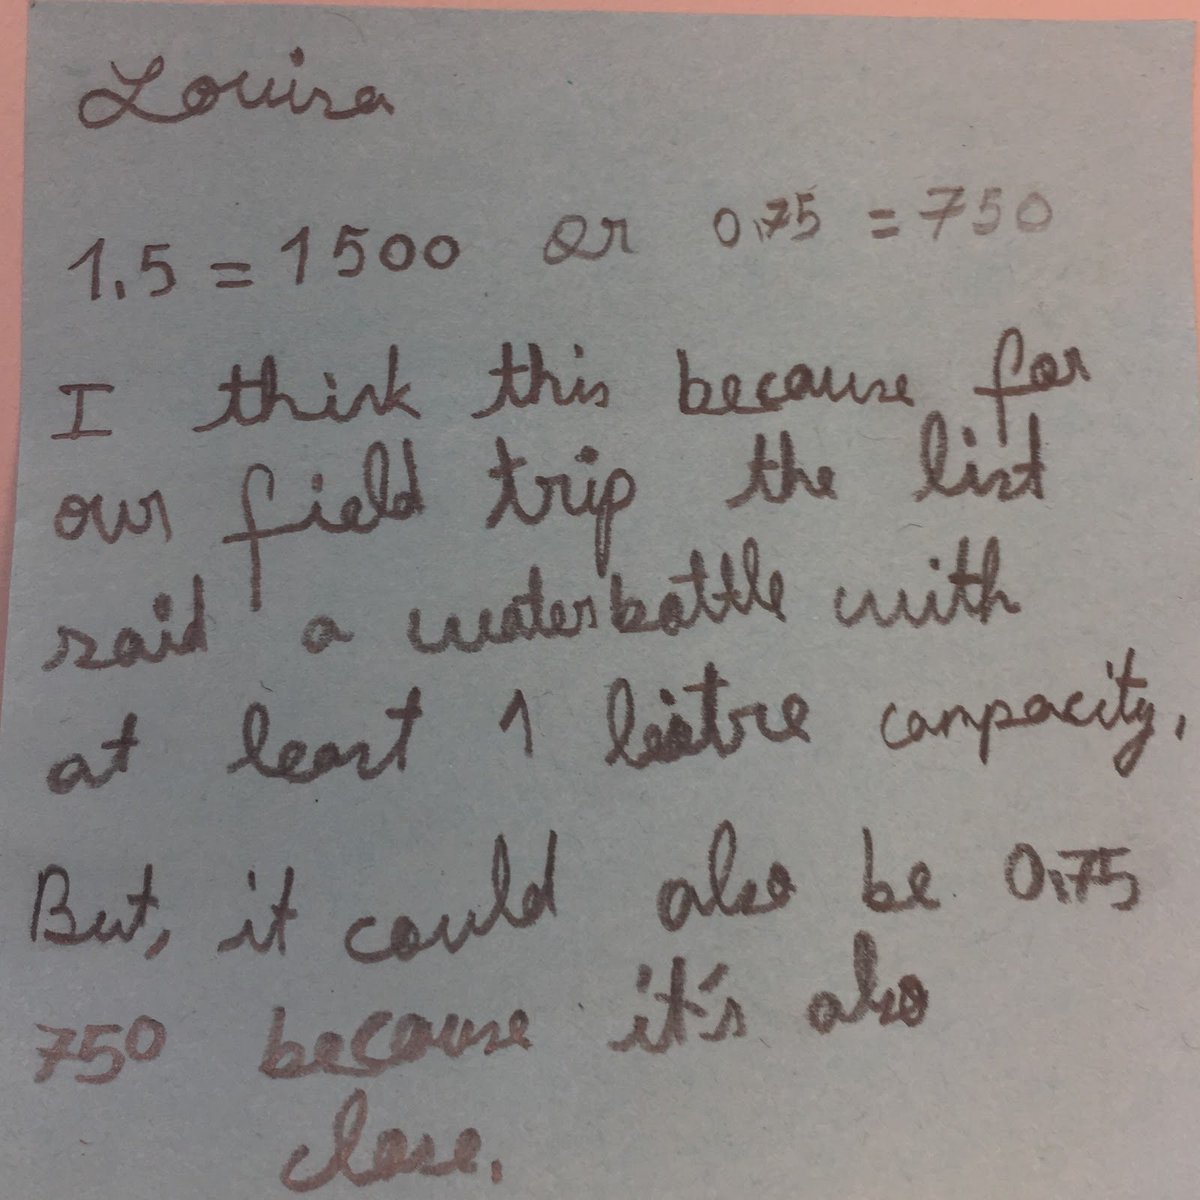 Louisa
1.5 = 1500 or 0.75 = 750
I think this because for
our field trip the list
said a waterbottle with
at least 1 leitre campacity.
But, it could also be 0.75
750 because it's also
close.